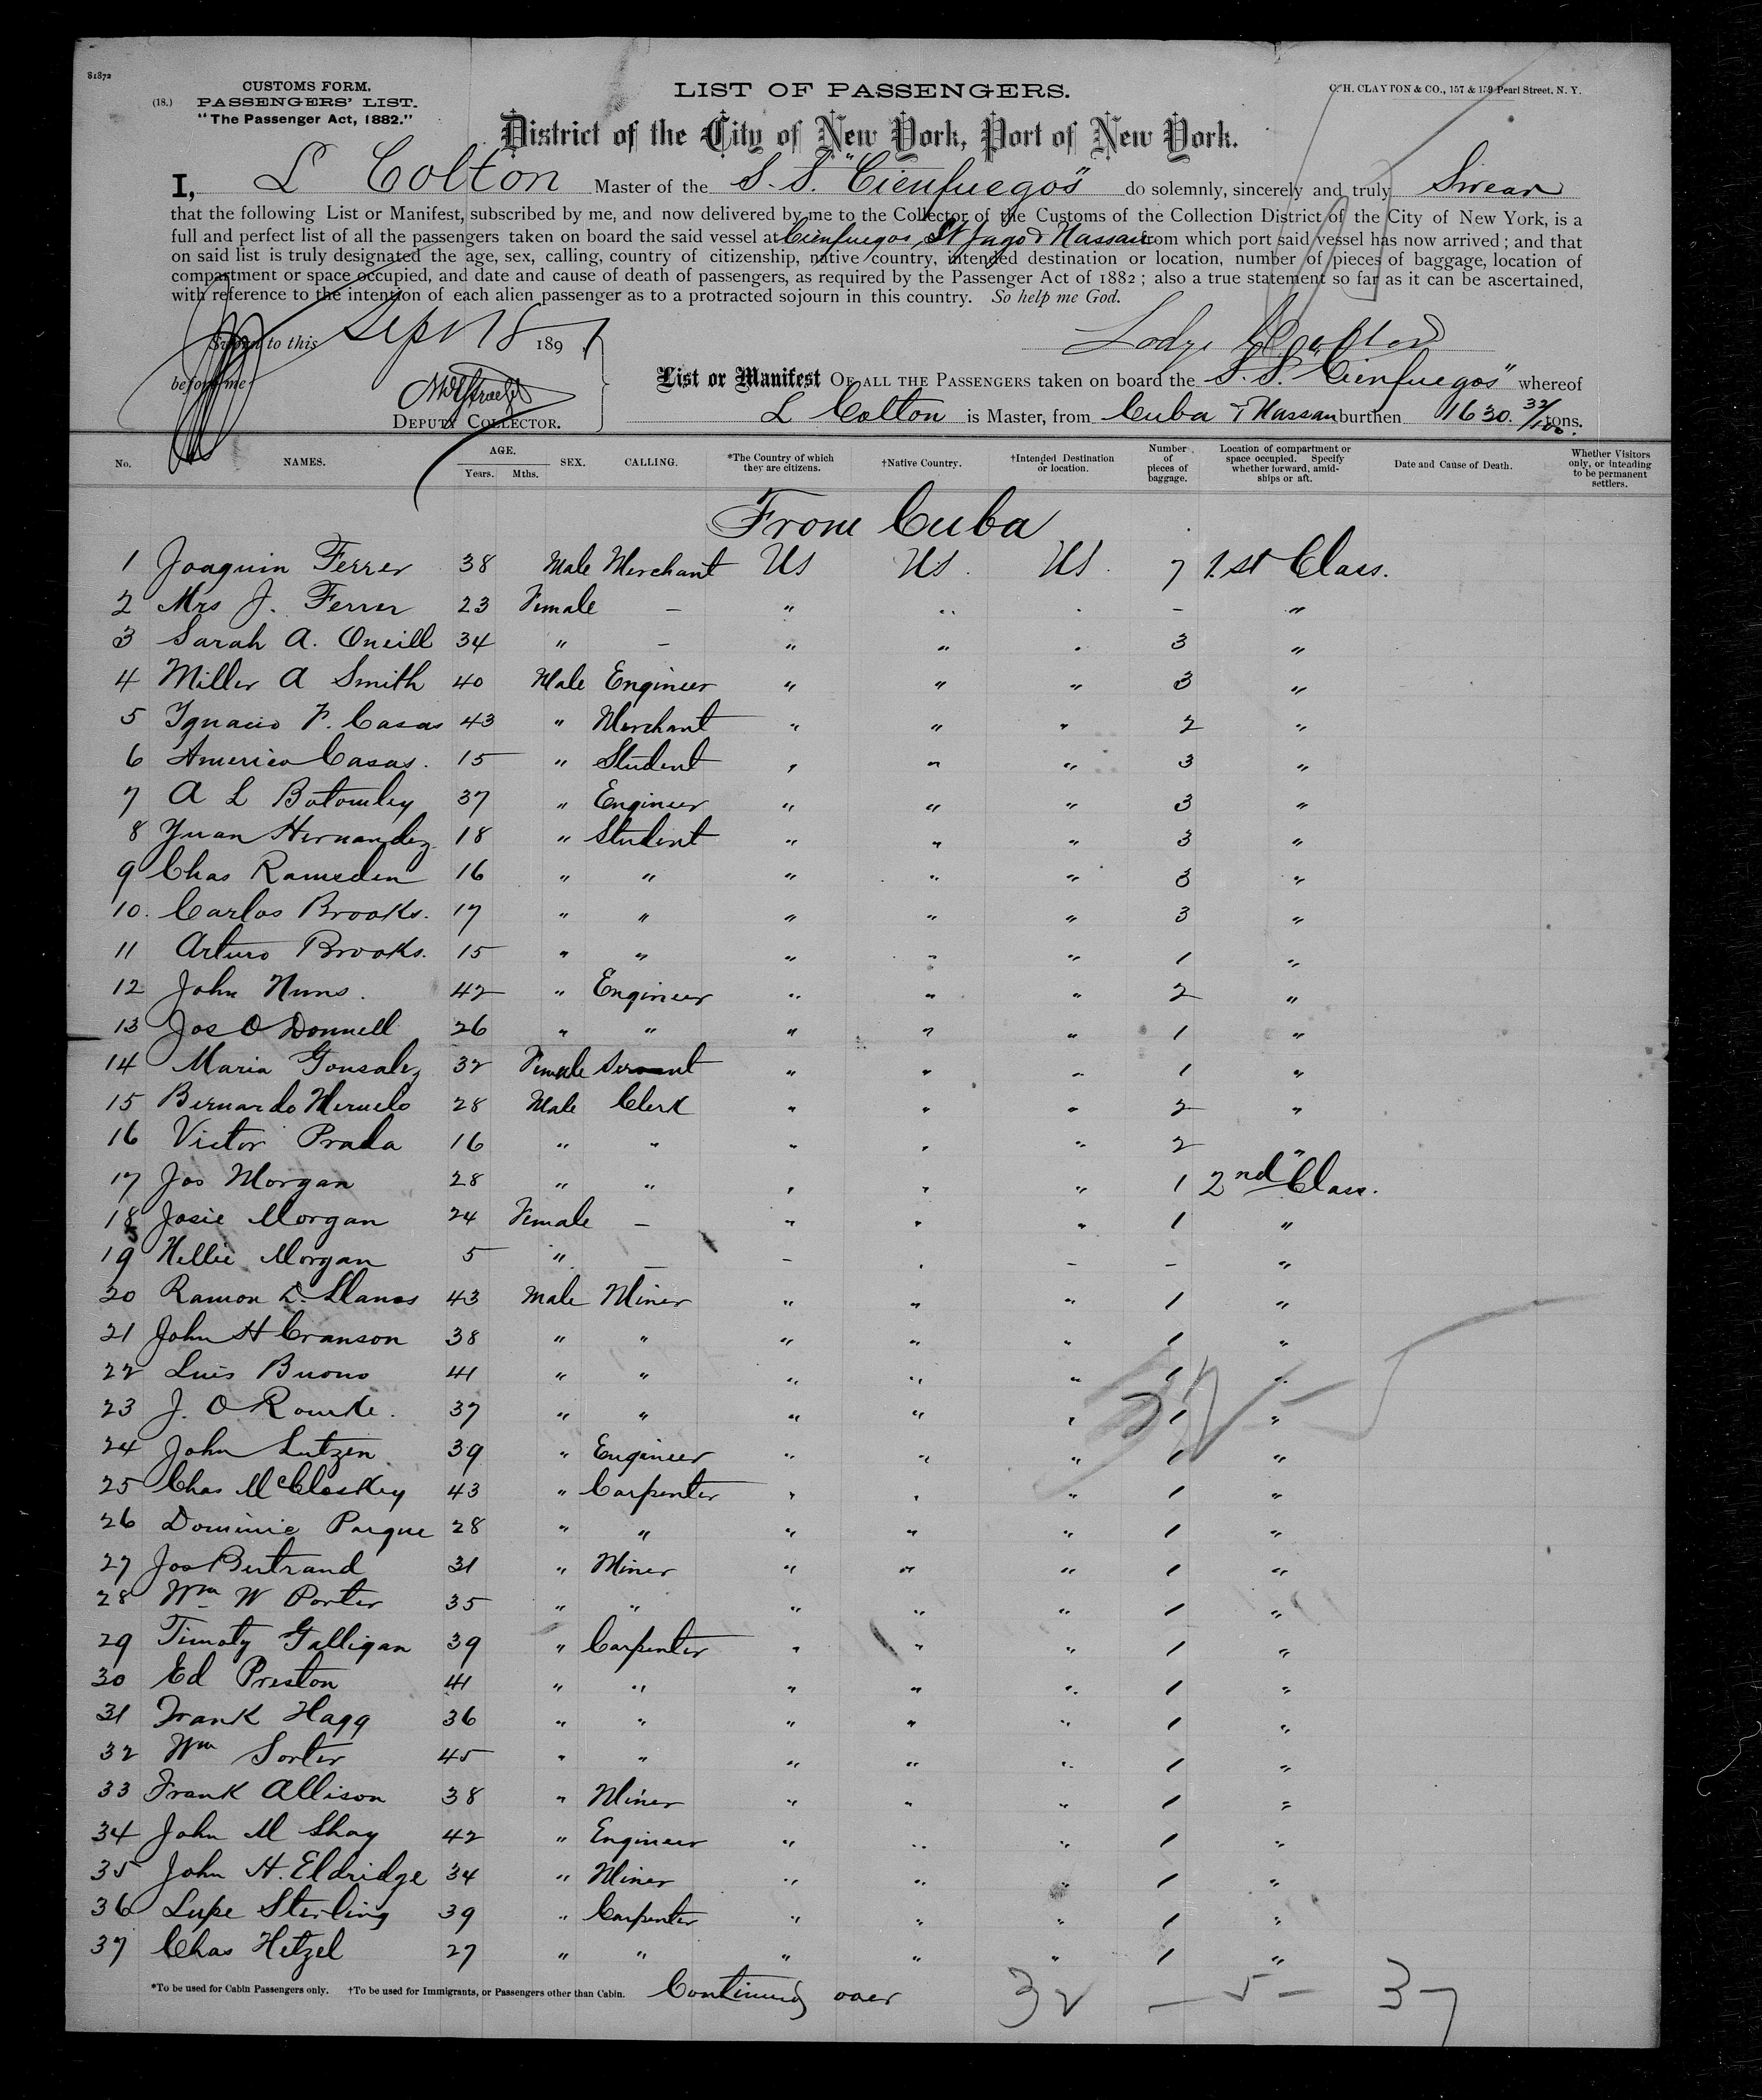 81872
CUSTOMS FORM.
(18.) PASSENGERS' LIST.
"The Passenger Act, 1882."
LIST OF PASSENGERS.
C. H. CLAYTON & CO., 157 & 159 Pearl Street, N. Y.
District of the City of New York, Port of New York.
I, L Colton Master of the S.S. "Cienfuegos" do solemnly, sincerely and truly Swear
that the following List or Manifest, subscribed by me, and now delivered by me to the Collector of the Customs of the Collection District of the City of New York, is a
full and perfect list of all the passengers taken on board the said vessel at Cienfuegos, St Jago & Nassau from which port said vessel has now arrived; and that
on said list is truly designated the age, sex, calling, country of citizenship, native country, intended destination or location, number of pieces of baggage, location of
compartment or space occupied, and date and cause of death of passengers, as required by the Passenger Act of 1882; also a true statement so far as it can be ascertained,
with reference to the intention of each alien passenger as to a protracted sojourn in this country. So help me God.
Sworn to this Sept 18 189
before me
Colton
DEPUTY COLLECTOR.
List or Manifest OF ALL THE PASSENGERS taken on board the S.S. "Cienfuegos" whereof
L Colton is Master, from Cuba & Nassau burthen 1630. 32/100 tons.
No. NAMES. AGE. Years. Mths. SEX. CALLING. *The Country of which they are citizens. †Native Country. †Intended Destination or location. Number of pieces of baggage. Location of compartment or space occupied. Specify whether forward, amidships or aft. Date and Cause of Death. Whether Visitors only, or intending to be permanent settlers.
From Cuba
1 Joaquin Ferrer 38 Male Merchant US US. US. 7 1.st Class.
2 Mrs J. Ferrer 23 Female — " " " — "
3 Sarah A. Oneill 34 " — " " " 3 "
4 Miller A Smith 40 Male Engineer " " " 3 "
5 Ignacio F. Casas 43 " Merchant " " " 2 "
6 America Casas. 15 " Student " " " 3 "
7 A L Botomley 37 " Engineer " " " 3 "
8 Juan Hernandez 18 " Student " " " 3 "
9 Chas Ramsden 16 " " " " " 3 "
10. Carlos Brooks. 17 " " " " " 3 "
11 Arturo Brooks. 15 " " " " " 1 "
12 John Nuns. 42 " Engineer " " " 2 "
13 Jos O Donnell 26 " " " " " 1 "
14 Maria Gonsalez 32 Female Servant " " " 1 "
15 Bernardo Meruelo 28 Male Clerk " " " 2 "
16 Victor Prada 16 " " " " " 2 "
17 Jos Morgan 28 " " " " " 1 2nd Class.
18 Josie Morgan 24 Female — " " " 1 "
19 Nellie Morgan 5 " — — " — — "
20 Ramon D. Llanos 43 Male Miner " " " 1 "
21 John H Cranson 38 " " " " " 1 "
22 Luis Buono 41 " " " " " 1 "
23 J. O Rourke. 37 " " " " " 1 "
24 John Lutzen 39 " Engineer " " " 1 "
25 Chas McCloskey 43 " Carpenter " " " 1 "
26 Dominic Parque 28 " " " " " 1 "
27 Jos Bertrand 31 " Miner " " " 1 "
28 Wm W Porter 35 " " " " " 1 "
29 Timoty Galligan 39 " Carpenter " " " 1 "
30 Ed Preston 41 " " " " " 1 "
31 Frank Hagg 36 " " " " " 1 "
32 Wm Sorter 45 " " " " " 1 "
33 Frank Allison 38 " Miner " " " 1 "
34 John M Shay 42 " Engineer " " " 1 "
35 John H. Eldridge 34 " Miner " " " 1 "
36 Lupe Sterling 39 " Carpenter " " " 1 "
37 Chas Hetzel 27 " " " " " 1 "
*To be used for Cabin Passengers only. †To be used for Immigrants, or Passengers other than Cabin. Continued over 32 — 5 — 37